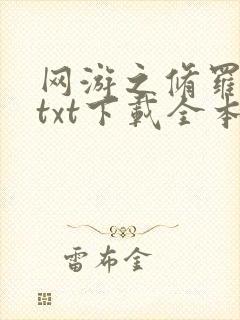 网游之修罗
txt下载全本
雷布金